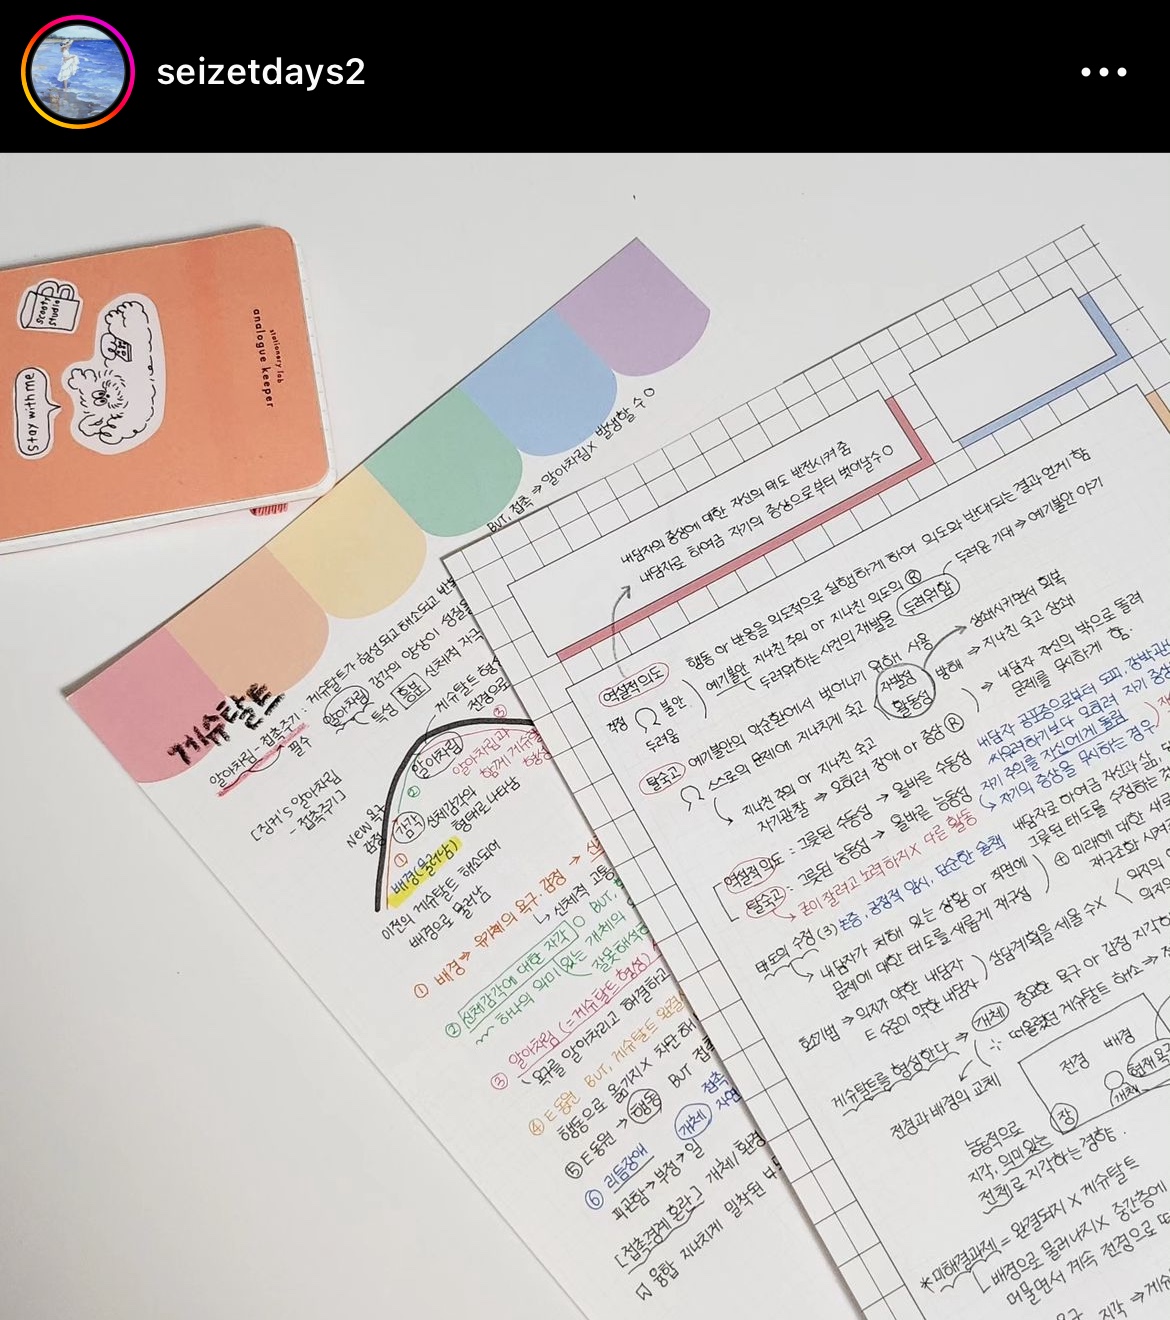 seizetdays2
Scoops
Studio
stay with me
stationery lab
analogue keeper
BUT, 접촉 ⇒ 알아차림X 발생할 수 O
게슈탈트
알아차림-접촉주기 : 게슈탈트가 형성되고 해소되고 반복
필수
알아차림
감각의 양상이
특성
흥분
신체적 자극
게슈탈트 형성
전경으로
[징커's 알아차림
- 접촉주기]
New 욕구
감정
③
알아차림
알아차림과
함께 게슈탈
형성
②
감각
신체감각의
형태로 나타남
①
배경(물러남)
이전의 게슈탈트 해소되어
배경으로 물러남
① 배경 ⇒ 유기체의 욕구·감정 →
↳ 신체적 고통
② 신체감각에 대한 자각 O BUT,
하나의 의미 있는 개체의
잘못해석
③ 알아차림 (=게슈탈트 형성)
욕구를 알아차리고 해결하고
④ E 동원 BUT, 게슈탈트 완결
행동으로 옮기지X 차단
⑤ E 동원 → 행동 BUT 접촉
⑥ 리듬장애 개체 접촉
피곤함 → 부정 → 일
[접촉경계 혼란] 개체/환경
융합 지나치게 밀착된
내담자의 증상에 대한 자신의 태도 반전시켜 줌
내담자로 하여금 자기의 증상으로부터 벗어날수 O
역설적의도
행동 or 반응을 의도적으로 실행하게 하여 의도와 반대되는 결과 얻게 함
걱정 불안
두려움
예기불안 지나친 주의 or 지나친 의도의 Ⓡ 두려운 기대 → 예기불안 야기
두려워하는 사건의 재발을 두려워함
탈숙고
예기불안의 악순환에서 벗어나기 위해 사용
스스로의 문제에 지나치게 숙고
자발성
활동성
방해
상쇄시키면서 회복
→ 지나친 숙고 상쇄
지나친 주의 or 지나친 숙고
자기관찰 ⇒ 오히려 장애 or 증상 Ⓡ
⇒ 내담자 자신의 밖으로 돌려
문제를 무시하게 함.
역설적의도 : 그릇된 수동성 → 올바른 수동성
내담자 공포증으로부터 도피, 강박관
싸우려하기보다 오히려 자기 증상
탈숙고 : 그릇된 능동성 → 올바른 능동성
자기 주의를 자신에게 돌림
↳ 자기의 증상을 무시하는 경우
↳ 굳이 잘하려고 노력하지X 다른 활동
태도의 수정 (3) 논증, 긍정적 암시, 단순한 술책
내담자로 하여금 자신과 삶,
그릇된 태도를 수정하는 것
↳ 내담자가 처해 있는 상황 or 직면에
문제에 대한 태도를 새롭게 재구성
⊕ 미래에 대한 새로
재구조화 시켜
호소기법 ⇒ 의지가 약한 내담자
E 수준이 약한 내담자
상담계획을 세울 수X
의지의
의지
게슈탈트를 형성한다 ⇒ 개체 중요한 욕구 or 감정 지각하
떠올렸던 게슈탈트 해소 ⇒
전경과 배경의 교체
전경
배경
개체
현재 욕구
장
능동적으로
지각, 의미 있는
전체로 지각하는 경향.
*미해결과제 = 완결되지 X 게슈탈트
배경으로 물러나지X 중간층에
머물면서 계속 전경으로